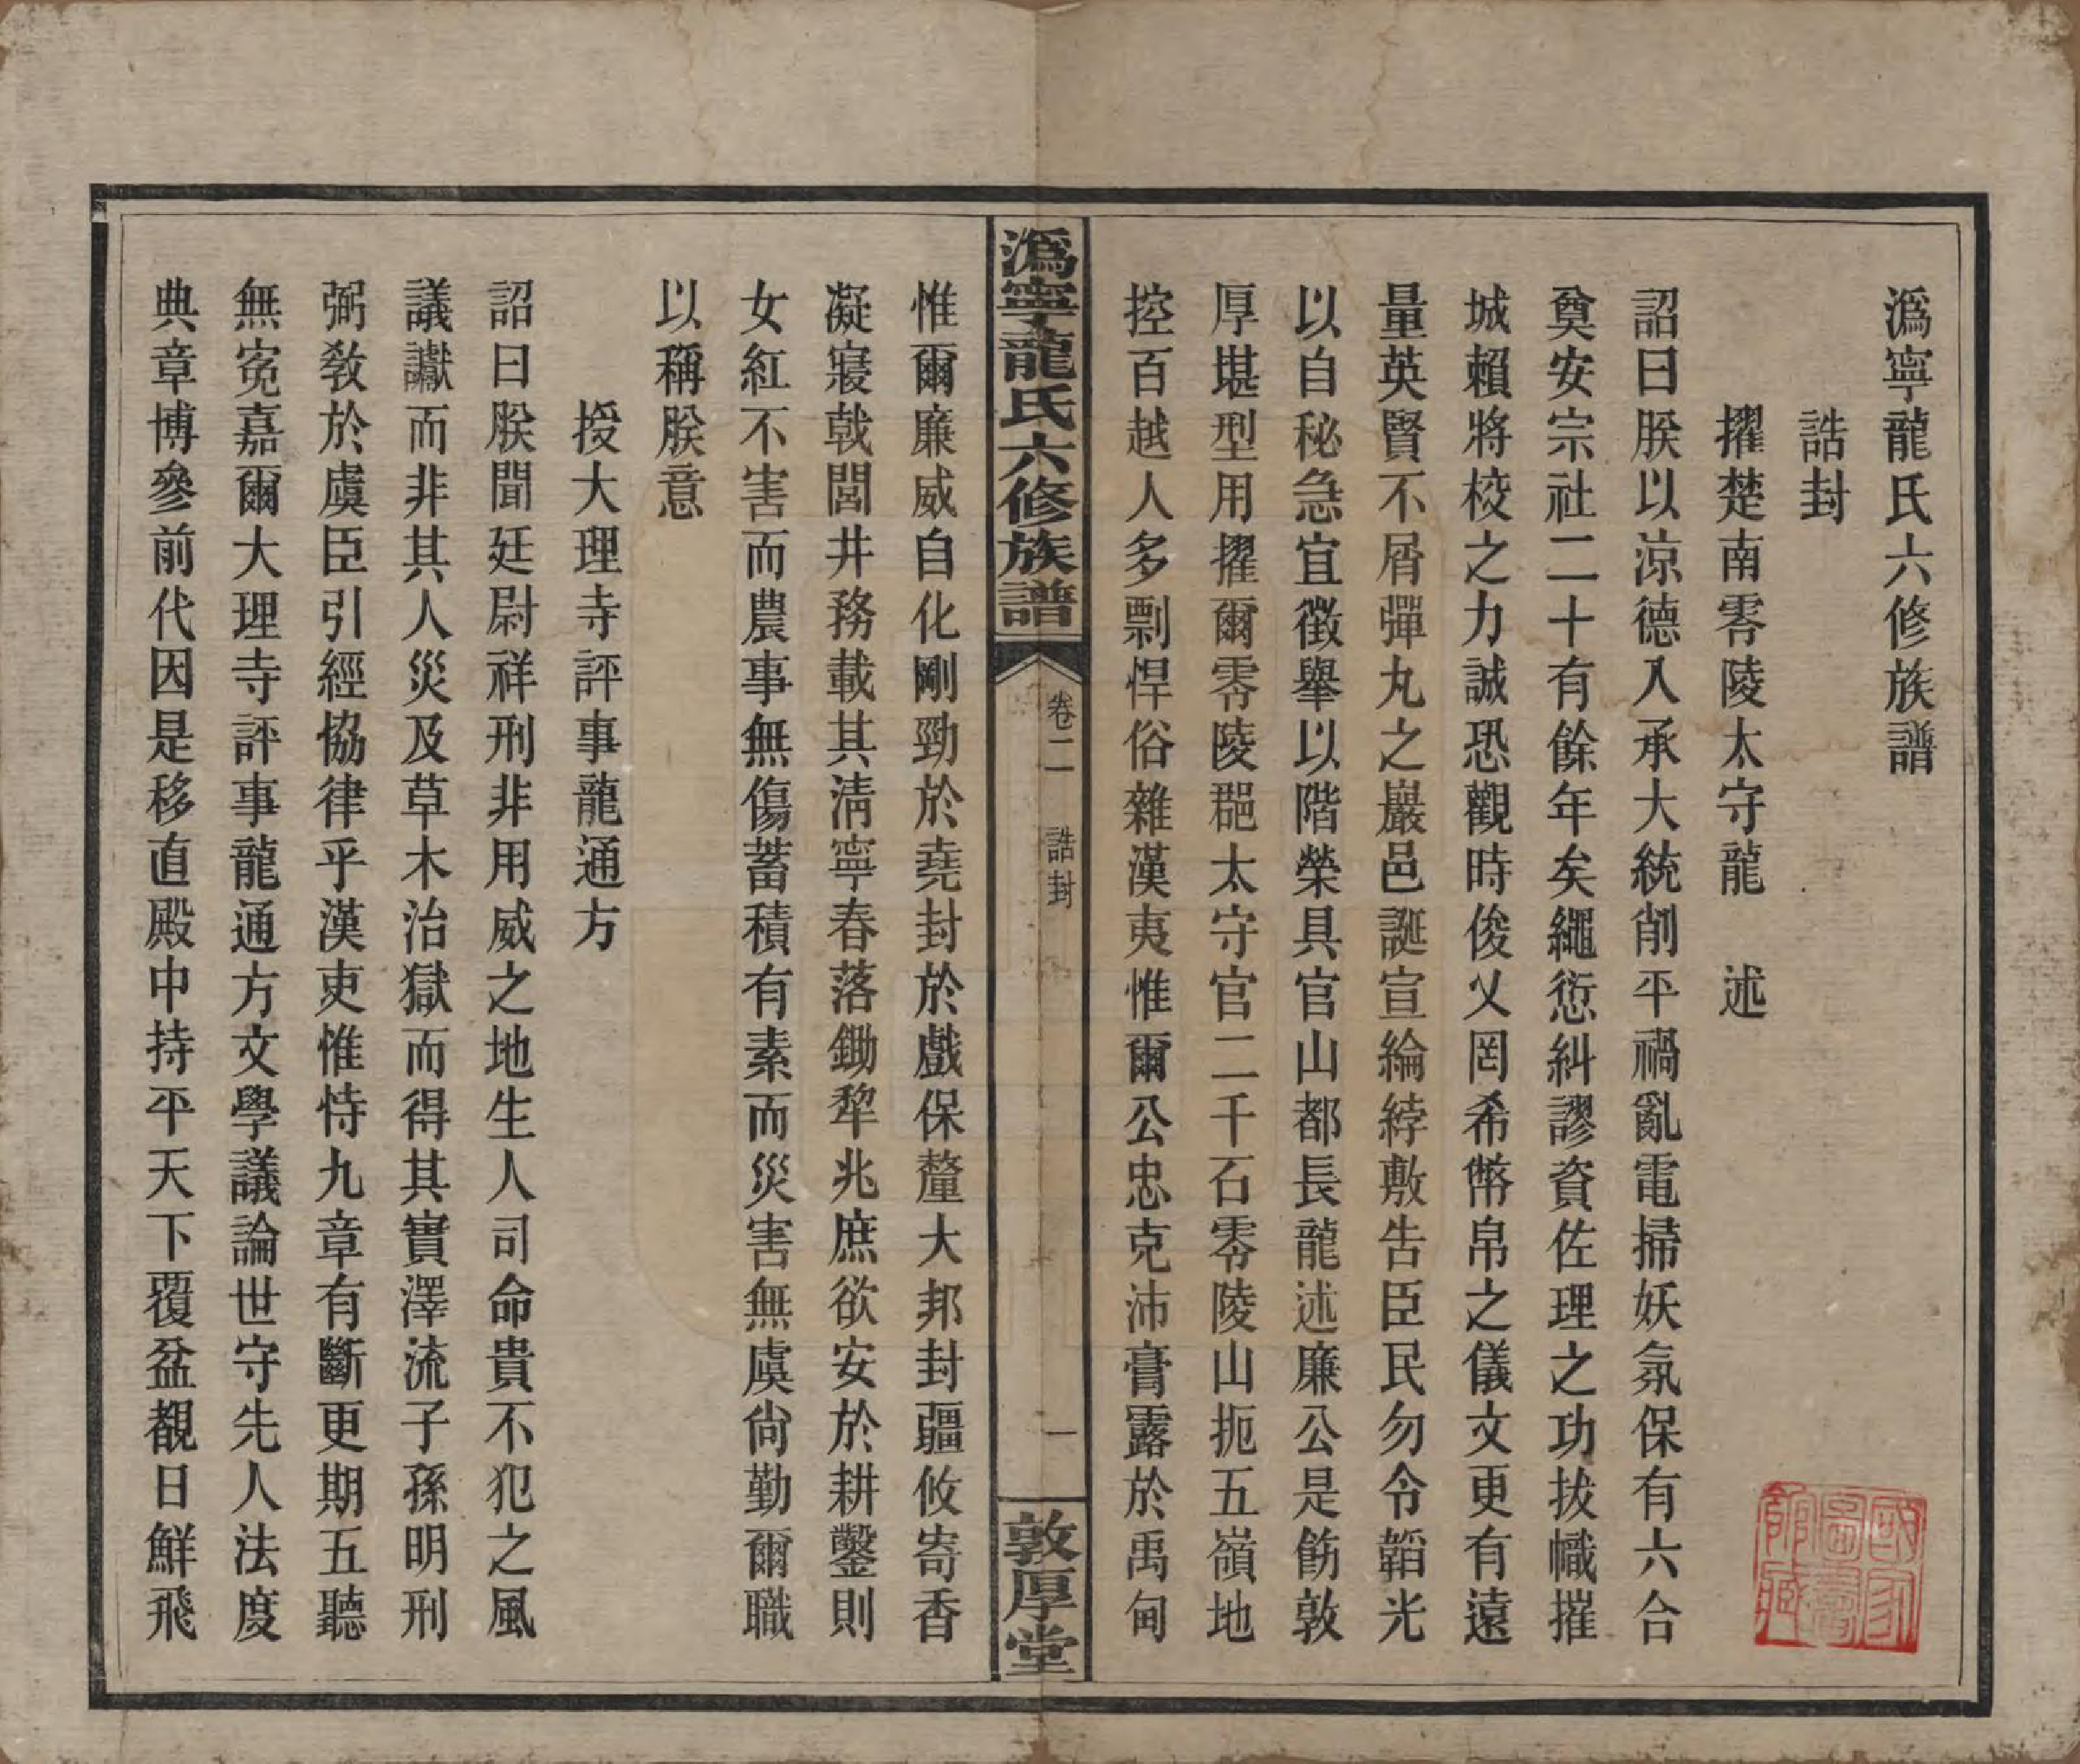 潙寧龍氏六修族譜
誥封
擢楚南零陵太守龍　述
詔曰朕以涼德入承大統削平禍亂電掃妖氛保有六合
奠安宗社二十有餘年矣繩愆糾謬資佐理之功拔幟摧
城賴將校之力誠恐觀時俊乂罔希幣帛之儀文更有遠
量英賢不屑彈丸之巖邑誕宣綸綍敷告臣民勿令韜光
以自秘急宜徵舉以階榮具官山都長龍述廉公是飭敦
厚堪型用擢爾零陵郡太守官二千石零陵山扼五嶺地
控百越人多剽悍俗雜漢夷惟爾公忠克沛膏露於禹甸
潙寧龍氏六修族譜
卷二　誥封
一
敦厚堂
惟爾廉威自化剛勁於堯封於戲保釐大邦封疆攸寄香
凝寢戟閭井務載其淸寧春落鋤犂兆庶欲安於耕鑿則
女紅不害而農事無傷蓄積有素而災害無虞尙勤爾職
以稱朕意
授大理寺評事龍通方
詔曰朕聞廷尉祥刑非用威之地生人司命貴不犯之風
議讞而非其人災及草木治獄而得其實澤流子孫明刑
弼敎於虞臣引經協律乎漢吏惟恃九章有斷更期五聽
無寃嘉爾大理寺評事龍通方文學議論世守先人法度
典章博參前代因是移直殿中持平天下覆盆覩日鮮飛
國家圖書館藏